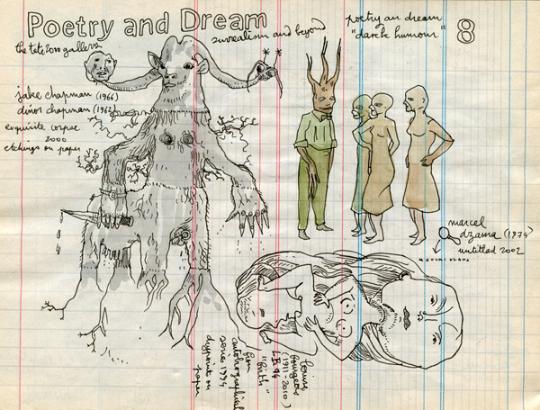 Poetry and Dream
surrealism and beyond
the tate 2000 gallery
poetry an dream
"dark humour"
8
jake chapman (1966)
dinos chapman (1962)
exquisite corpse
2000
etchings on paper
marcel
dzama (1974)
untitled 2002
louise
bourgeois
(1911-2010)
L.B. 94
"birth"
from
autobiographical
series 1994
drypoint on
paper